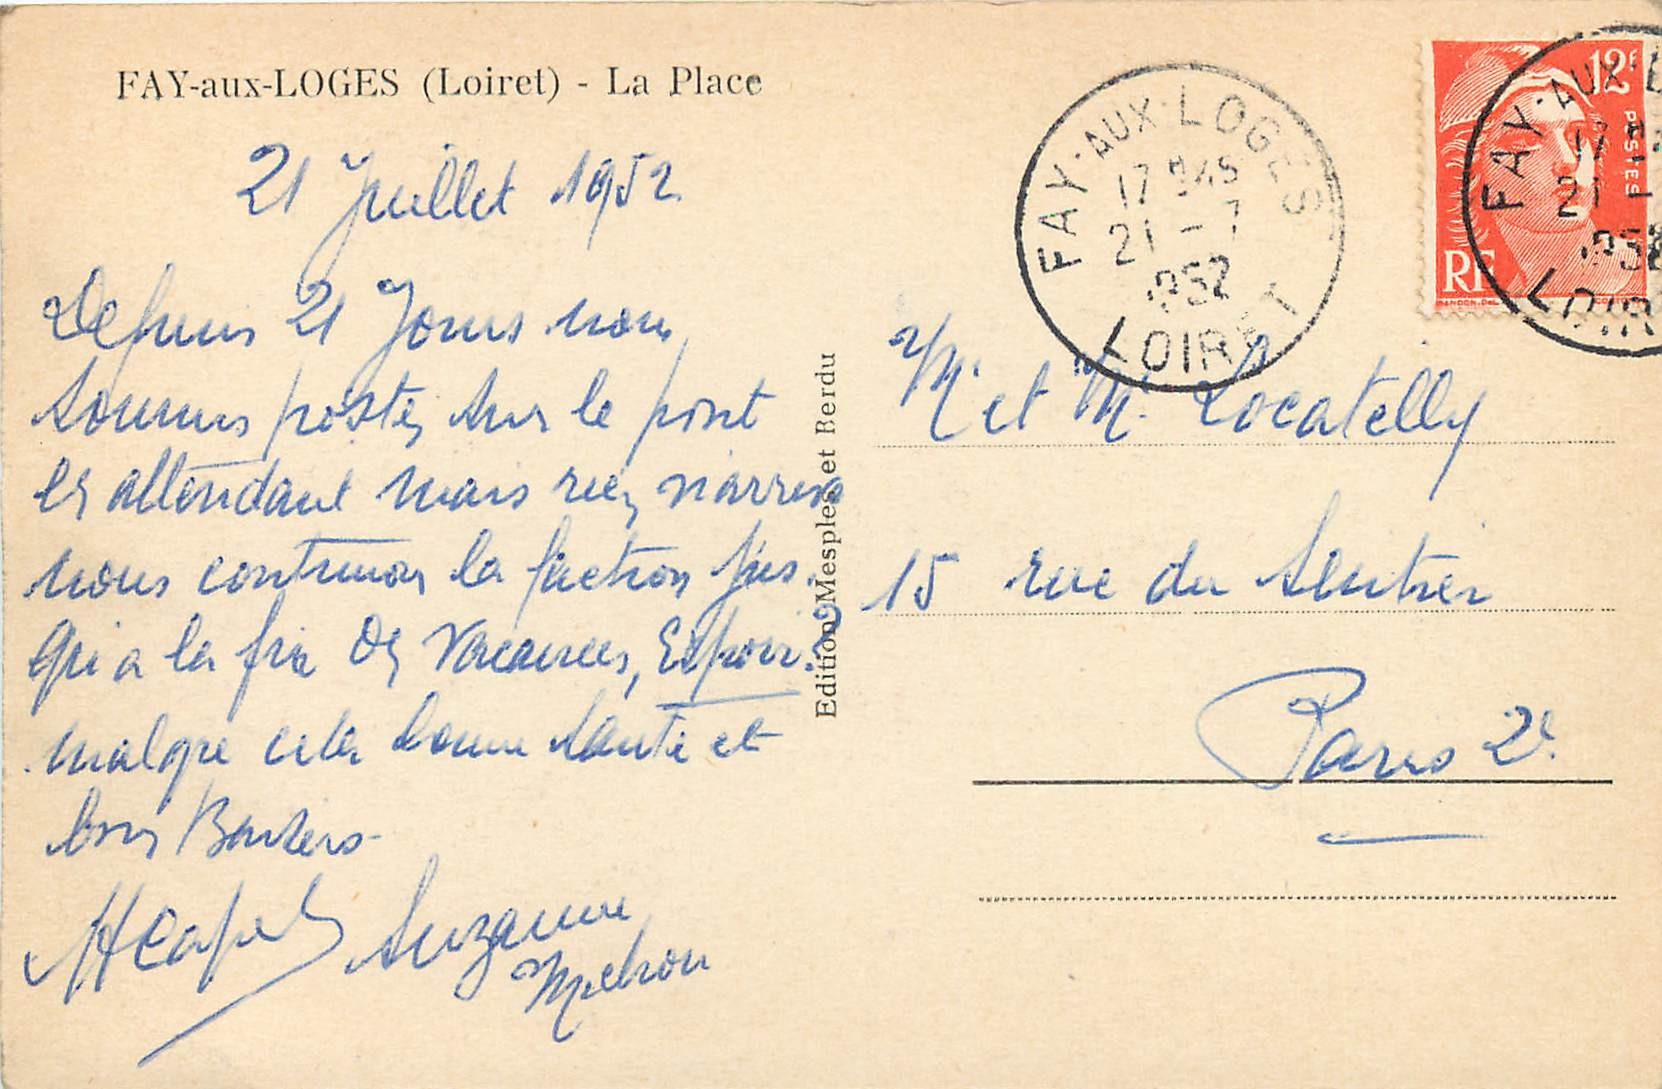 FAY-aux-LOGES (Loiret) - La Place
21 Juillet 1952
Depuis 21 Jours nous
sommes postés sur le pont
les attendant mais rien n'arrive
nous continuons la faction jus.
qu'a la fin des vacances, Espoir ?
malgré cela bonne santé et
bons Baisers
Suzanne
Edition Mesples et Berdu
FAY-AUX-LOGES
17 H45
21 - 7
1952
LOIRET
12F
POSTES
RF
FAY-AUX-L
17
21
195
LOIR
Mr et M. Locatelly
15 rue du Sentier
Paris 2e.